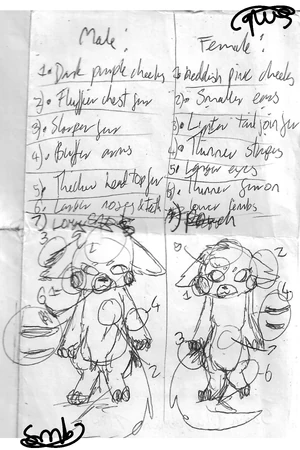 Male:
1. Dark purple cheeks
2) Fluffier chest fur
3) Sharper fur
4) Buffer arms
5) Thicker head top fur
6. Larger noses & teeth
7)
3
1
6
4
2
Female:
1. Reddish pink cheeks
2) Smaller ears
3) Lighter tail join fur
4) Thinner stripes
5. Longer eyes
6. Thinner fur on
lower limbs
7)
1
3
7
6